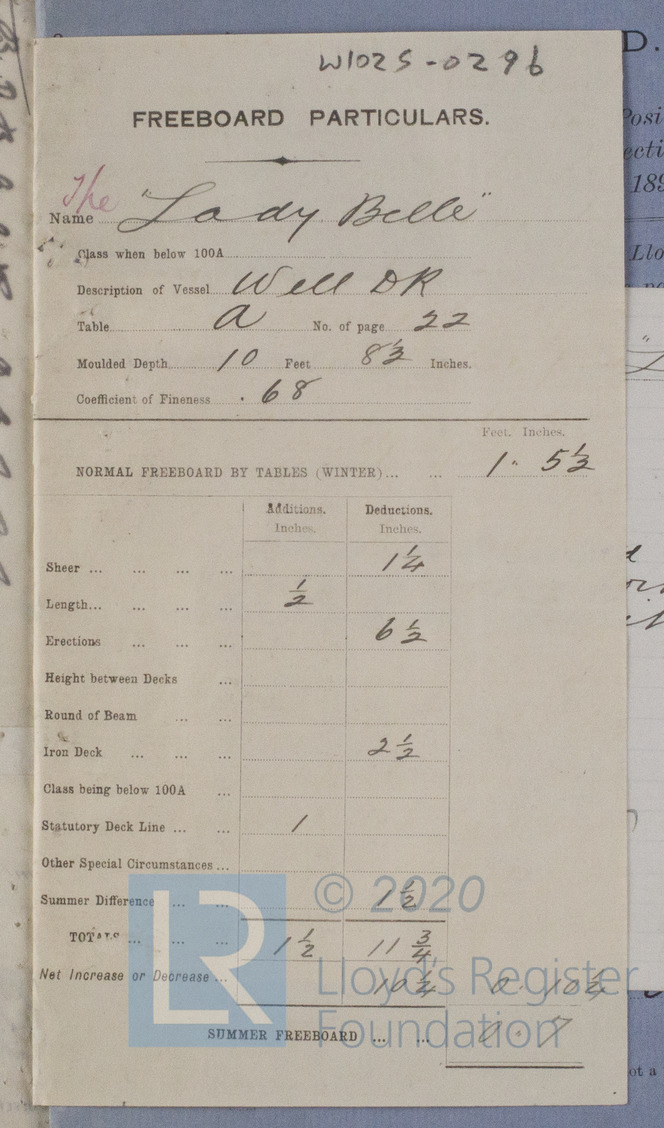 W1025-0296
FREEBOARD PARTICULARS.
The
Name "Lady Belle"
Class when below 100A
Description of Vessel Well DK
Table a No. of page 22
Moulded Depth 10 Feet 8½ Inches.
Coefficient of Fineness .68
Feet. Inches.
NORMAL FREEBOARD BY TABLES (WINTER)... ... 1" 5½
Additions. Deductions.
Inches. Inches.
Sheer ... ... ... ... 1¼
Length... ... ... ... ½
Erections ... ... ... 6½
Height between Decks ...
Round of Beam ... ...
Iron Deck ... ... ... 2½
Class being below 100A ...
Statutory Deck Line ... ... 1
Other Special Circumstances ...
Summer Difference ... ... 1½
TOTALS ... ... ... 1½ 11¾
Net Increase or Decrease ... 10¼ 0" 10¼
SUMMER FREEBOARD ... ... 0" 7
© 2020
LR
Lloyd's Register
Foundation
D.
Posi
ecti
189
Llo
ot a